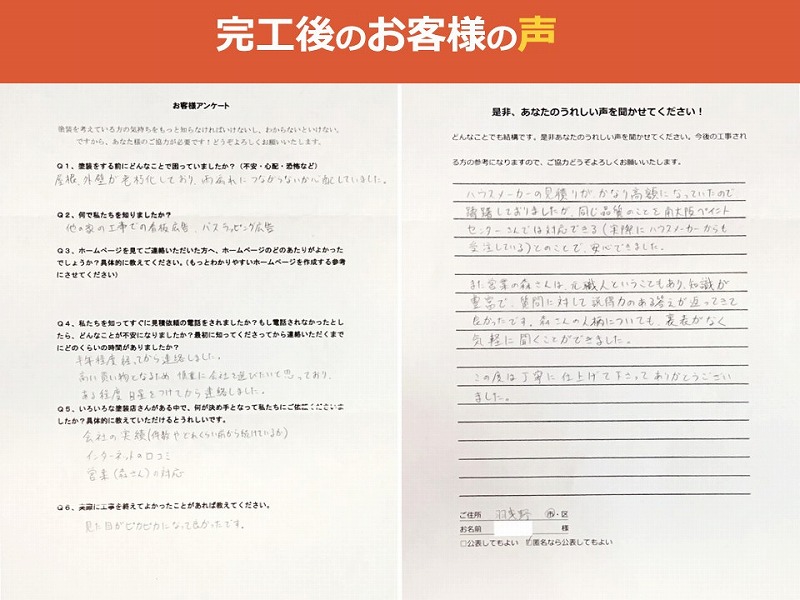 完工後のお客様の声
お客様アンケート
塗装を考えている方の気持ちをもっと知らなければいけないし、わからないといけない。
ですから、あなた様のご協力が必要です！どうぞよろしくお願いいたします。
Q1、塗装をする前にどんなことで困っていましたか？（不安・心配・恐怖など）
屋根、外壁が老朽化しており、雨漏れにつながらないか心配していました。
Q2、何で私たちを知りましたか？
他の家の工事での看板広告、バスラッピング広告
Q3、ホームページを見てご連絡いただいた方へ、ホームページのどのあたりがよかった
でしょうか？具体的に教えてください。（もっとわかりやすいホームページを作成する参考
にさせてください）
Q4、私たちを知ってすぐに見積依頼の電話をされましたか？もし電話されなかったとし
たら、どんなことが不安になりましたか？最初に知ってくださってから連絡いただくまで
にどのくらいの時間がありましたか？
半年程度経ってから連絡しました。
高い買い物となるため慎重に会社を選びたいと思っており、
ある程度目星をつけてから連絡しました。
Q5、いろいろな塗装店さんがある中で、何が決め手となって私たちにご依頼くださいま
したか？具体的に教えていただけるとうれしいです。
会社の実績(件数やどれくらい前から続けているか)
インターネットの口コミ
営業(森さん)の対応
Q6、実際に工事を終えてよかったことがあれば教えてください。
見た目がピカピカになって良かったです。
是非、あなたのうれしい声を聞かせてください！
どんなことでも結構です。是非あなたのうれしい声を聞かせてください。今後の工事され
る方の参考になりますので、ご協力どうぞよろしくお願いいたします。
ハウスメーカーの見積りがかなり高額になっていたので
躊躇しておりましたが、同じ品質のことを南大阪ペイント
センターさんでは対応できる(実際にハウスメーカーからも
受注している)とのことで、安心できました。
また営業の森さんは、元職人ということもあり、知識が
豊富で、質問に対して説得力のある答えが返ってきて
良かったです。森さんの人柄についても、裏表がなく
気軽に聞くことができました。
この度は丁寧に仕上げて下さってありがとうござい
ました。
ご住所 羽曳野 市・区
お名前 様
□公表してもよい ☑匿名なら公表してもよい